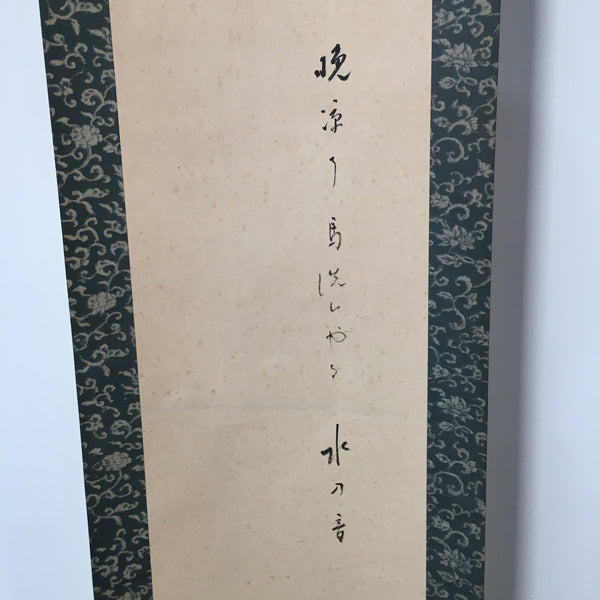 晩涼に馬洗ひやる水乃音